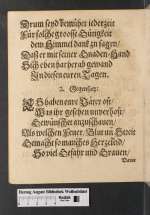 Drum seyd bemühet jederzeit
Für solche grosse Gütigkeit
dem Himmel danck zu sagen/
Daß er mit seiner Gnaden-Hand
Sich eben har herab gewand
In diesen euren Tagen.
2. Gegensatz:
Es haben eure Väter offt/
Was ihr gesehen unverhofft/
Gewünschet anzuschauen/
Als welchen Feuer/ Blut und Streit
Gemacht so manches Hertzeleid/
So viel Gefahr und Grauen/
Herzog August Bibliothek Wolfenbüttel